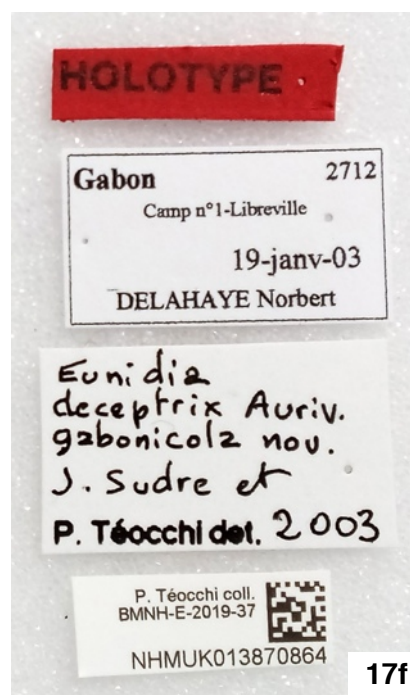 HOLOTYPE
Gabon 2712
Camp n°1-Libreville
19-janv-03
DELAHAYE Norbert
Eunidia
deceptrix Auriv.
gabonicola nov.
J. Sudre et
P. Téocchi det. 2003
P. Téocchi coll.
BMNH-E-2019-37
NHMUK013870864
17f